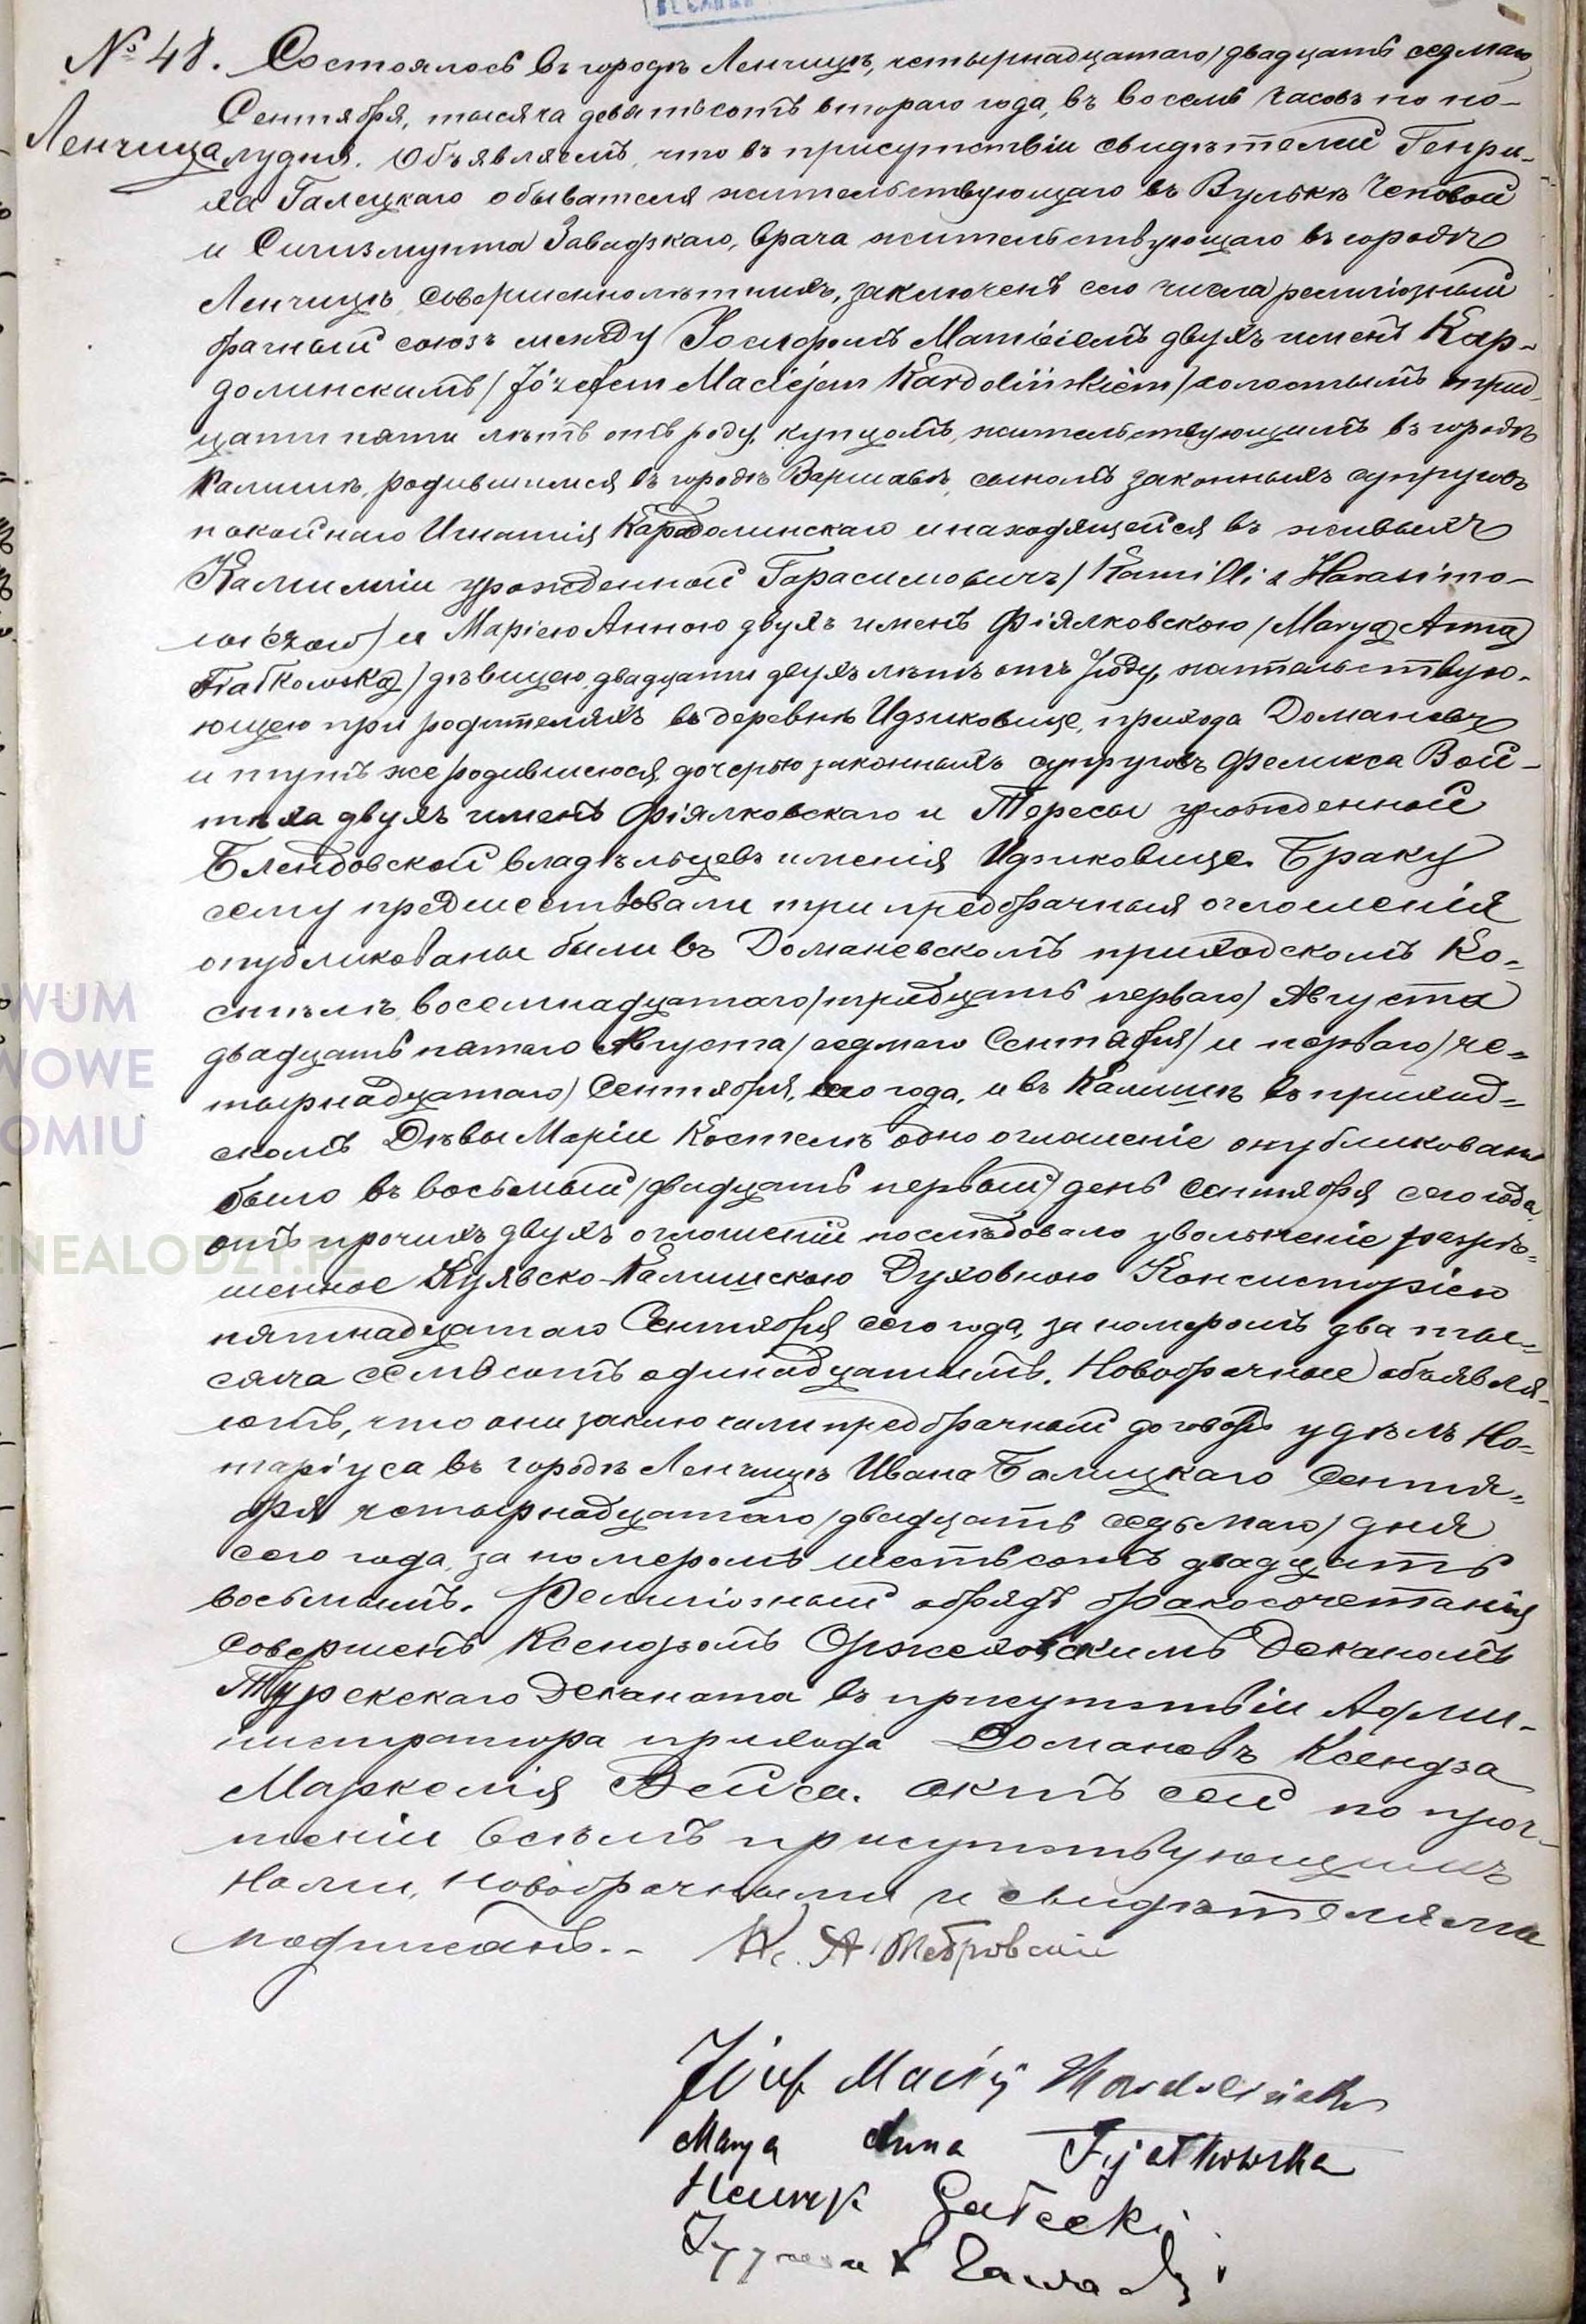 № 48. Состоялось въ городѣ Ленчицѣ, четырнадцатаго/двадцать седмаго
Ленчица
Сентября, тысяча девятьсотъ втораго года, въ восемь часовъ по по-
лудня. Объявляемъ, что въ присутствіи свидѣтелей Генри-
ха Галецкаго обывателя жительствующаго въ Вулькѣ
и Сигизмунта Завадзкаго, врача жительствующаго въ городѣ
Ленчицѣ, совершеннолѣтнихъ, заключенъ сего числа религіозный
брачный союзъ между Іосифомъ Матвіемъ двухъ именъ Кар-
долинскимъ/Józefem Maciejem Kardolińskiem/холостымъ трид-
цати пяти лѣтъ отъ роду, купцомъ, жительствующимъ въ городѣ
Калишѣ, родившимся въ городѣ Варшавѣ, сыномъ законныхъ супруговъ
покойнаго Игнатія Кардолинскаго и находящейся въ живыхъ
Камиллии урожденной Гарасимовичъ/Kamilli z Harasimo-
wiczow/и Маріею Анною двухъ именъ Фіялковскою/Maryą Anną
Fiałkowską/дѣвицею, двадцати двухъ лѣтъ отъ роду, жительствую-
ющею при родителяхъ въ деревнѣ Идзиковице, прихода Доманевъ
и тутъ же родившеюся, дочерью законныхъ супруговъ Феликса Вой-
тѣха двухъ именъ Фіялковскаго и Тересы урожденной
Блендовской владѣльцевъ имѣнія Идзиковице. Браку
сему предшествовали три предбрачныя оглашенія
опубликованы были въ Доманевскомъ приходскомъ Ко-
стѣлѣ, восемнадцатаго/тридцать перваго/Августа
двадцать пятаго Августа/седмаго Сентября/и перваго/че-
тырнадцатаго/Сентября, сего года, и въ Калишѣ въ приход-
скомъ Дѣвы Маріи Костелѣ одно оглашеніе опубликовано
было въ восьмый/двадцать первый/день Сентября сего года,
отъ прочихъ двухъ оглашеній послѣдовало увольненіе разрѣ-
шенное Куявско-Калишскою Духовною Консисторіею
пятнадцатаго Сентября сего года, за номеромъ два ты-
сяча семьсотъ одинадцатымъ. Новобрачные объявля-
ютъ, что они заключили предбрачный договоръ у дѣлъ Но-
таріуса въ городѣ Ленчицѣ Ивана Балицкаго Сентя-
бря четырнадцатаго/двадцать седьмаго/дня
сего года, за номеромъ шестьсотъ двадцать
восьмымъ. Религіозный обрядъ бракосочетанія
совершенъ Ксендзомъ Оржеховскимъ Деканомъ
Турекскаго Деканата въ присутствіи Адми-
нистратора прихода Доманевъ Ксендза
Маркелія Вейса. Актъ сей по проч-
теніи всѣмъ присутствующимъ
Нами, новобрачными и свидѣтелями
подписанъ.-
Кс. А.
Józef Maciej Kardoliński
Marya Anna Fijałkowska
Henryk Gałecki
Zygmunt Zawadzki
WUM
WOWE
OMIU
ENEALODZY.PL